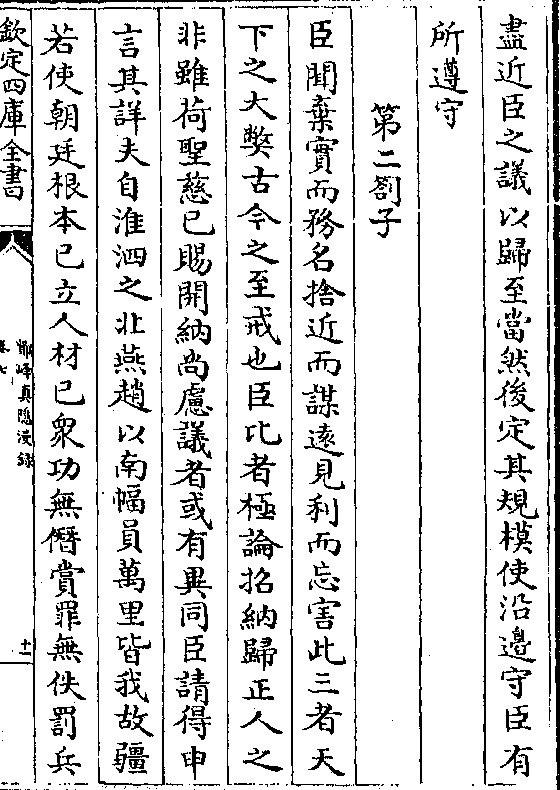 盡近臣之議以歸至當然後定其規模使沿邊守臣有
所遵守
第二劄子
臣聞棄實而務名捨近而謀遠見利而忘害此三者天
下之大弊古今之至戒也臣比者極論招納歸正人之
非雖荷聖慈已賜開納尚慮議者或有異同臣請得申
言其詳夫自淮泗之北燕趙以南幅員萬里皆我故疆
若使朝廷根本已立人材已衆功無僭賞罪無佚罰兵
欽定四庫全書
鄮峰真隱漫録
卷七
十一